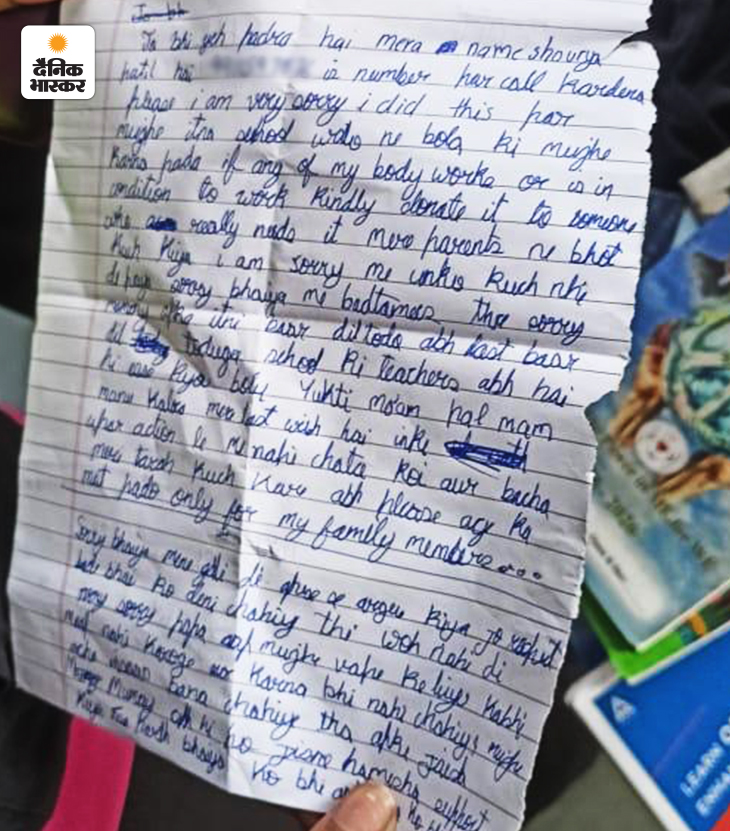 दैनिक
भास्कर
Jo bhi yeh padra hai mera name shourya
patil hai is number par call kardena
please i am very sorry i did this par
mujhe itna school walo ne bola ki mujhe
karna pada if any of my body works or is in
condition to work kindly donate it to someone
who really needs it mere parents ne bhot
kuch kiya i am sorry me unko kuch nhi
de paya sorry bhaiya me badtameez tha sorry
mummy apka itni baar dil toda abh last baar
dil todunga school ki teachers abh hai
hi ase kya bolu Yukti ma'am pal mam
manu kalra mera last wish hai inke
uper action le me nahi chata koi aur bacha
meri tarah kuch kare abh please agy ka
mat pado only for my family members...
Sorry bhaiya mene gali di apse se argue kiya jo respect
bade bhai ko deni chahiye thi woh nahi di
sorry papa aap mujhe kabhi
maaf nahi karoge aur karna bhi nahi chahiye mujhe
acha insaan bana chahiye tha apke jaisa
mummy ap hi ho jisne hamesha support
kiya bhaiya ko bhi
LEARN